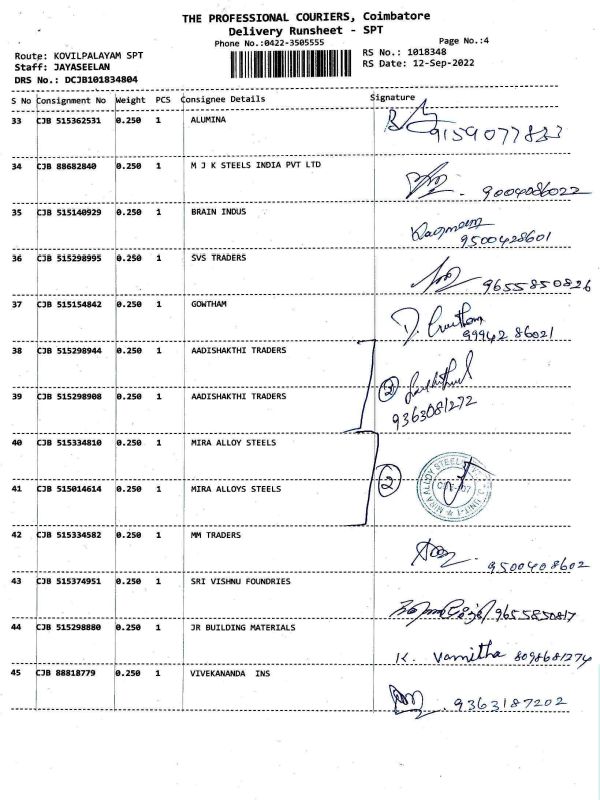 THE PROFESSIONAL COURIERS, Coimbatore
Delivery Runsheet - SPT
Phone No.:0422-3505555
Page No.:4
Route: KOVILPALAYAM SPT
RS No.: 1018348
Staff: JAYASEELAN
RS Date: 12-Sep-2022
DRS No.: DCJB101834804
S No Consignment No Weight PCS Consignee Details Signature
33 CJB 515362531 0.250 1 ALUMINA
34 CJB 88682840 0.250 1 M J K STEELS INDIA PVT LTD
9004086022
35 CJB 515140929 0.250 1 BRAIN INDUS
9500428601
36 CJB 515298995 0.250 1 SVS TRADERS
9655850826
37 CJB 515154842 0.250 1 GOWTHAM
D. Gowtham
99942 86021
38 CJB 515298944 0.250 1 AADISHAKTHI TRADERS
2
39 CJB 515298908 0.250 1 AADISHAKTHI TRADERS
9363081272
40 CJB 515334810 0.250 1 MIRA ALLOY STEELS
2
MIRA ALLOY STEELS
41 CJB 515014614 0.250 1 MIRA ALLOYS STEELS
42 CJB 515334582 0.250 1 MM TRADERS
9500408602
43 CJB 515374951 0.250 1 SRI VISHNU FOUNDRIES
9655850817
44 CJB 515298880 0.250 1 JR BUILDING MATERIALS
K. Vamitha 8098681274
45 CJB 88818779 0.250 1 VIVEKANANDA INS
9363187202